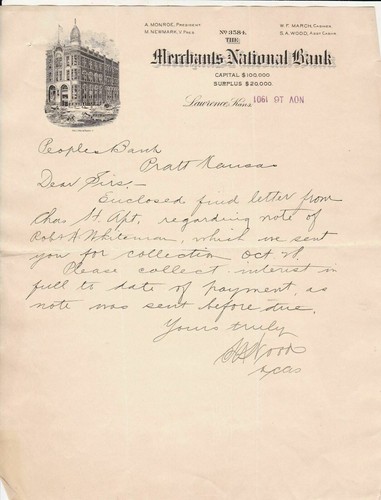 A. MONROE, PRESIDENT
M. NEWMARK, V. PRES.
No 3584.
W. F. MARCH, CASHIER
S. A. WOOD, ASST CASHR
THE
Merchants National Bank
CAPITAL $100,000
SURPLUS $20,000
Lawrence, Kans. NOV 16 1901
Peoples Bank
Pratt Kansas
Dear Sirs,-
Enclosed find letter from
Chas. H. Apt. regarding note of
Robt H Whiteman, which we sent
you for collection Oct 21.
Please collect interest in
full to date of payment, as
note was sent before due.
Yours truly
SA Wood